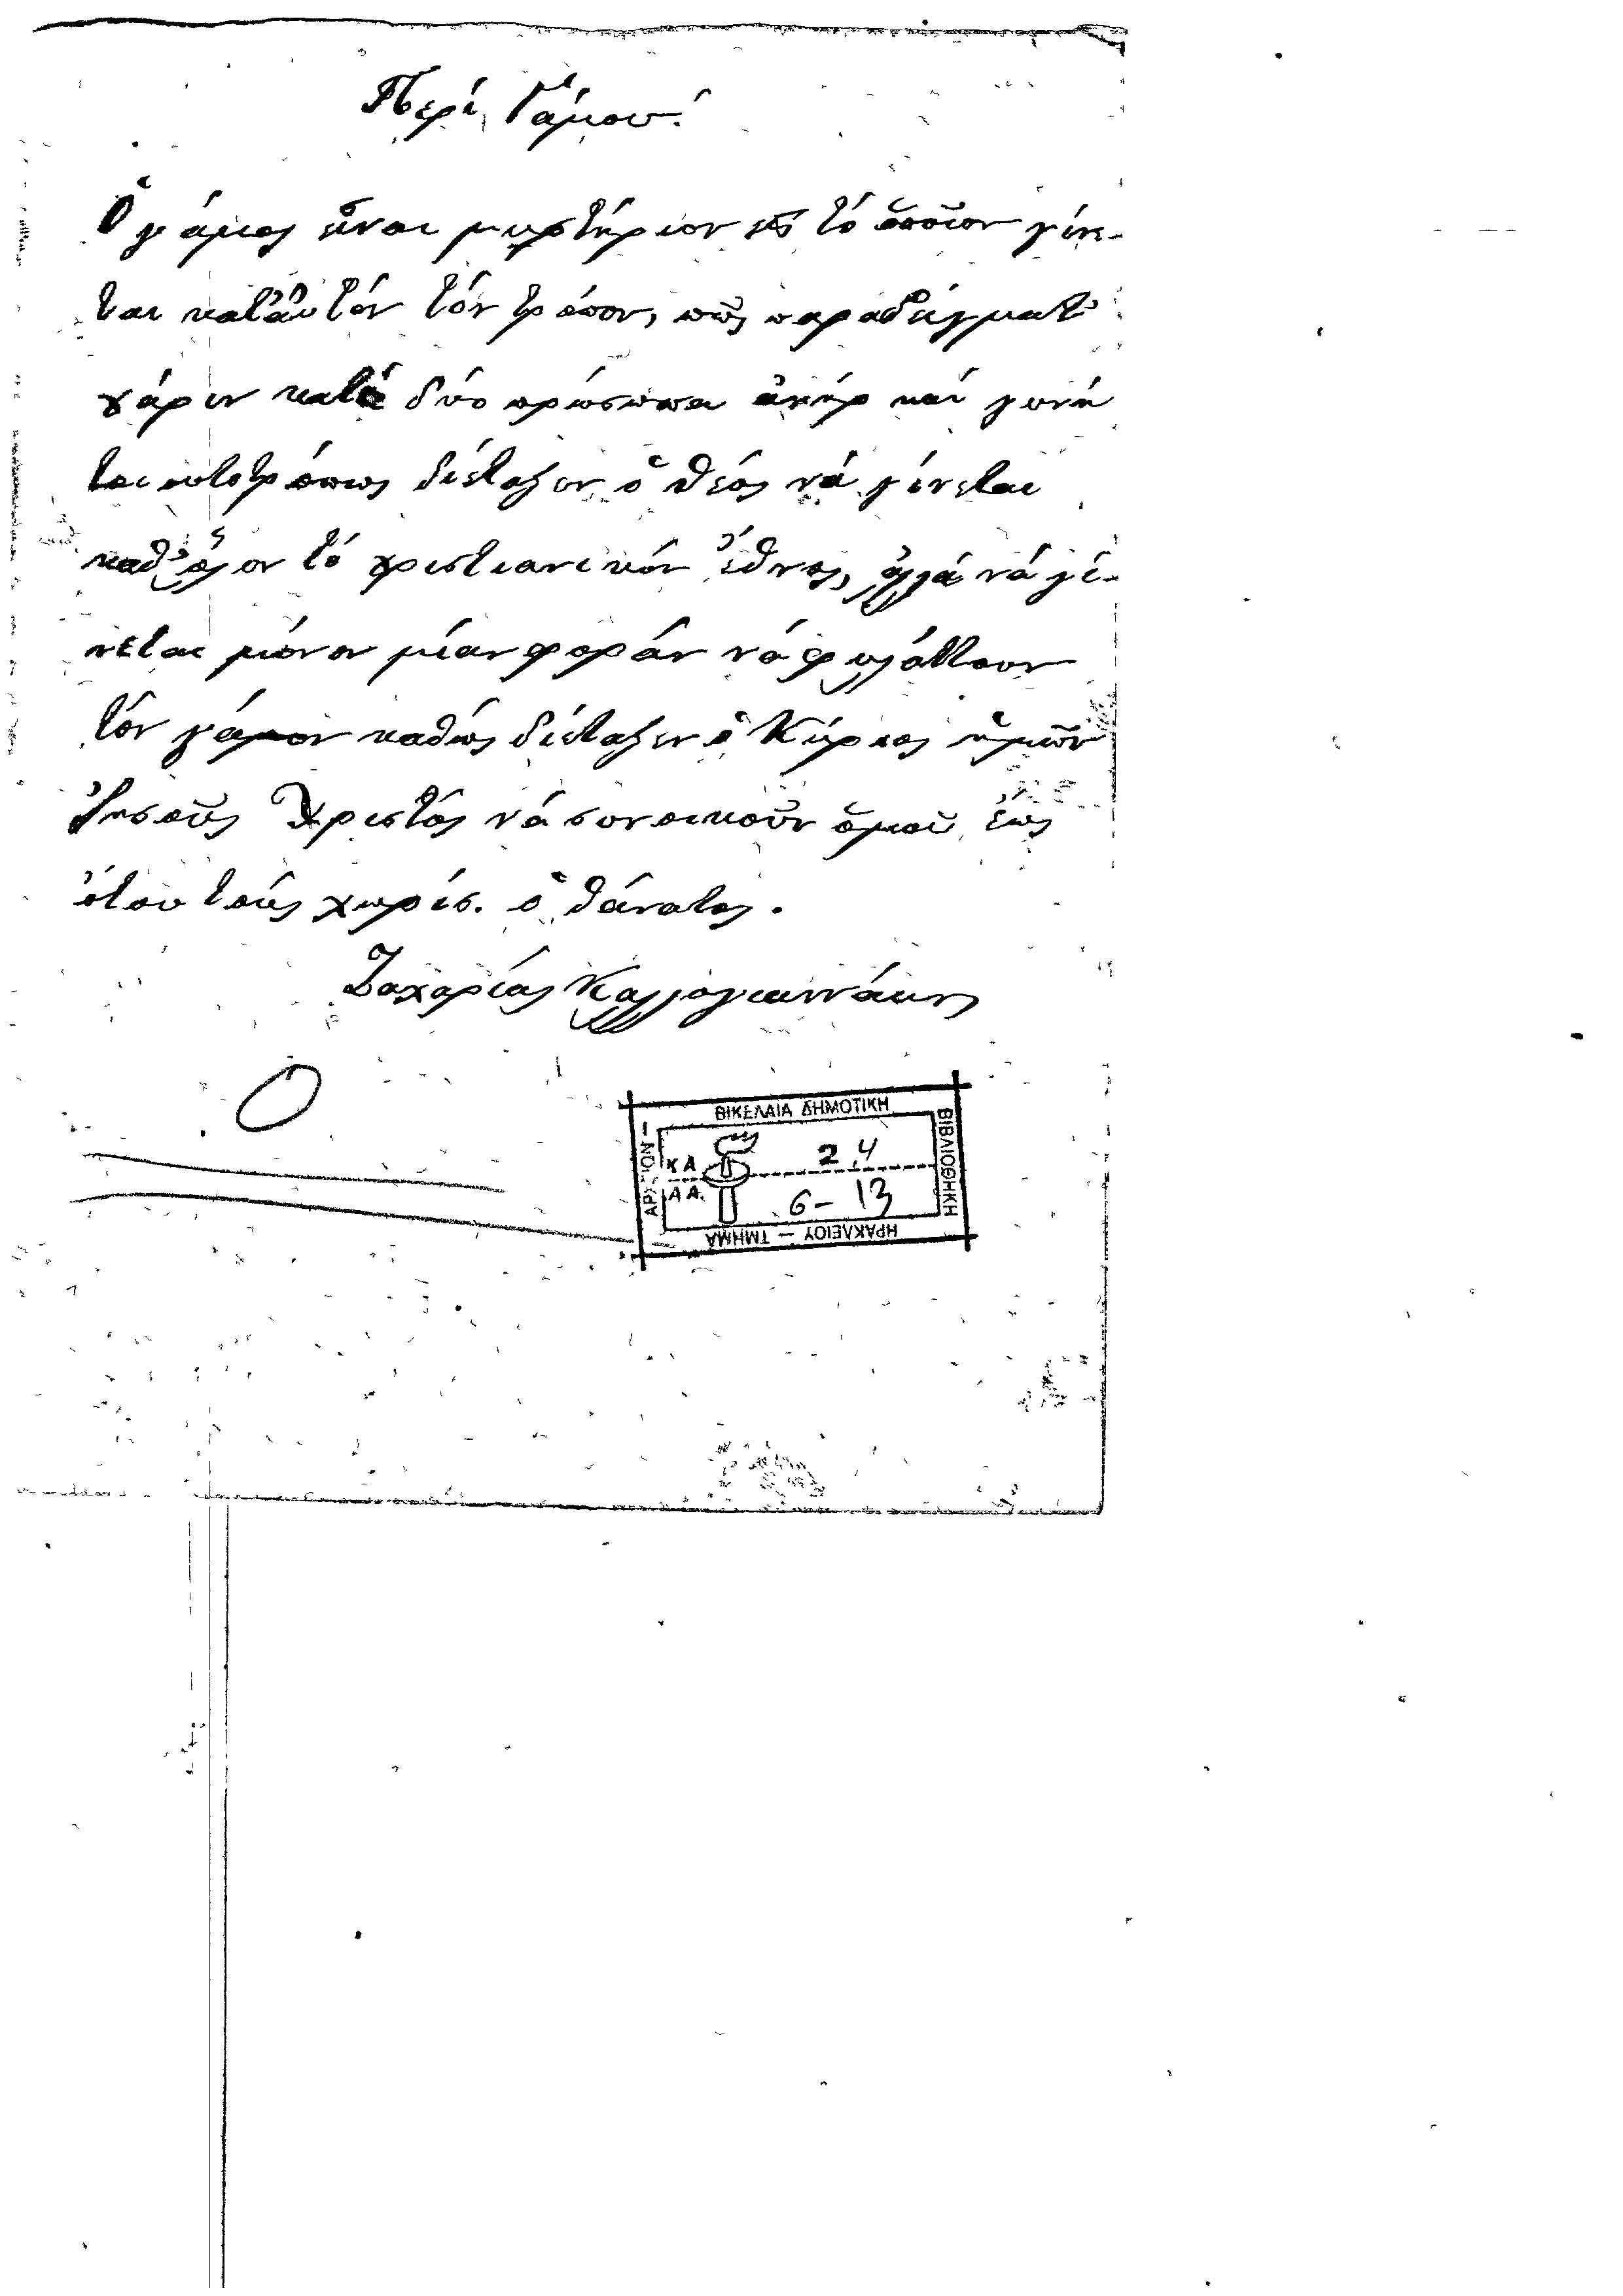 Περί Γάμου.
Ὁ γάμος εἶναι μυστήριον εἰς τό ὁποῖον γίνε-
ται κατ' αὐτόν τόν τρόπον, πῶς παραδείγματ
χάριν κατά δύο πρώσωπα ἀνήρ καί γυνή
τοιουτοτρόπως διέταξεν ὁ θεός νά γίνεται
καθ' ὅλον τό χριστιανικόν ἔθνος, ἀλλά νά γί-
νεται μόνον μίαν φοράν νά φυλάττουν
τόν γάμον καθώς διέταξεν ὁ Κύριος ἡμῶν
Ἰησοῦς Χριστός νά συνοικοῦν ὁμοῦ ἕως
ὅτου τούς χωρίσ. ὁ θάνατος.
Ζαχαρίας Καλλογιαννάκης
ΒΙΚΕΛΑΙΑ ΔΗΜΟΤΙΚΗ
ΒΙΒΛΙΟΘΗΚΗ
ΗΡΑΚΛΕΙΟΥ — ΤΜΗΜΑ
ΑΡΧΕΙΩΝ —
ΚΑ 24
ΑΑ. 6-13